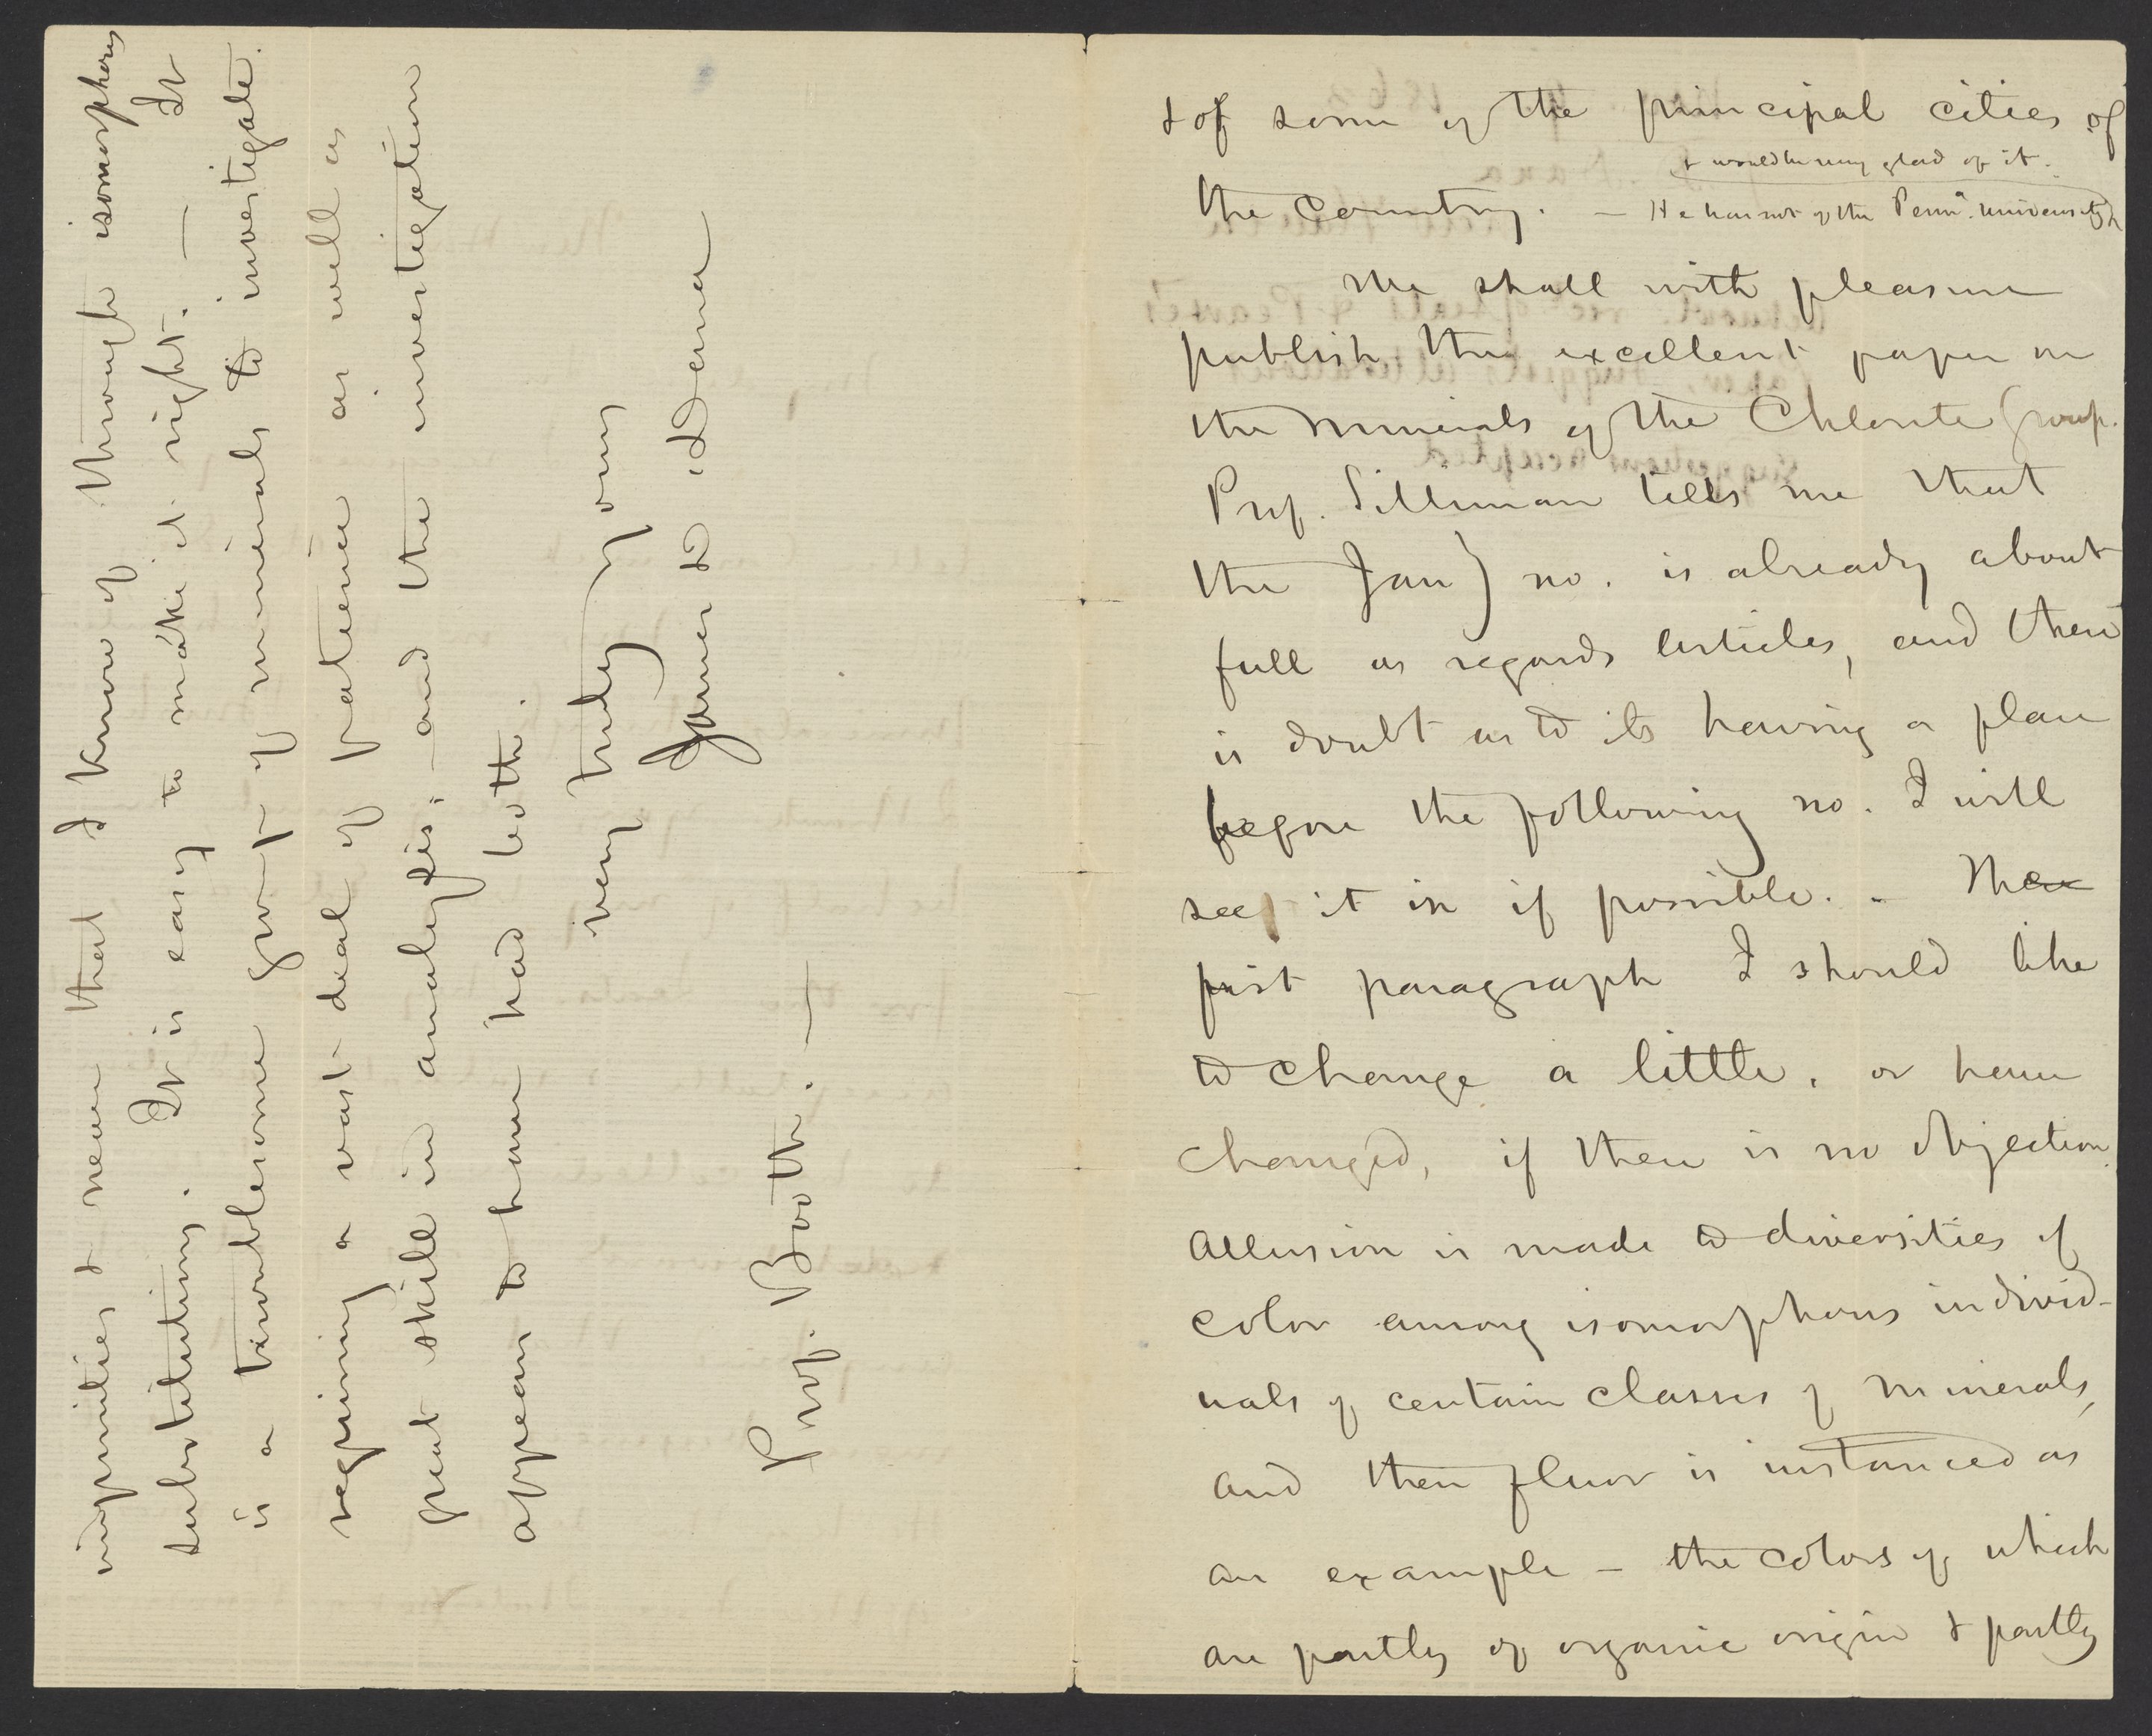 & of some of the principal cities of
the country. — He has not of the Penna. University &
& would be very glad of it.
We shall with pleasure
publish the excellent paper on
the minerals of the Chlorite Group.
Prof. Silliman tells me that
the Jan) no. is already about
full as regards Articles, and there
is doubt as to its having a place
before the following no. I will
see it in if possible. - The
first paragraph I should like
to change a little, or have
changed, if there is no objection.
Allusion is made to diversities of
color among isomorphous individ-
uals of certain classes of minerals,
and then fluor is instanced as
an example – the colors of which
are partly of organic origin & partly
impurities & never that I know of through isomorphous
substitutions. It is easy to make it right. — It
is a troublesome group of minerals to investigate.
requiring a vast deal of patience as well as
great skill in analysis; – and the investigation
appears to have had both.
very truly yours
James D Dana
Prof. Booth. —